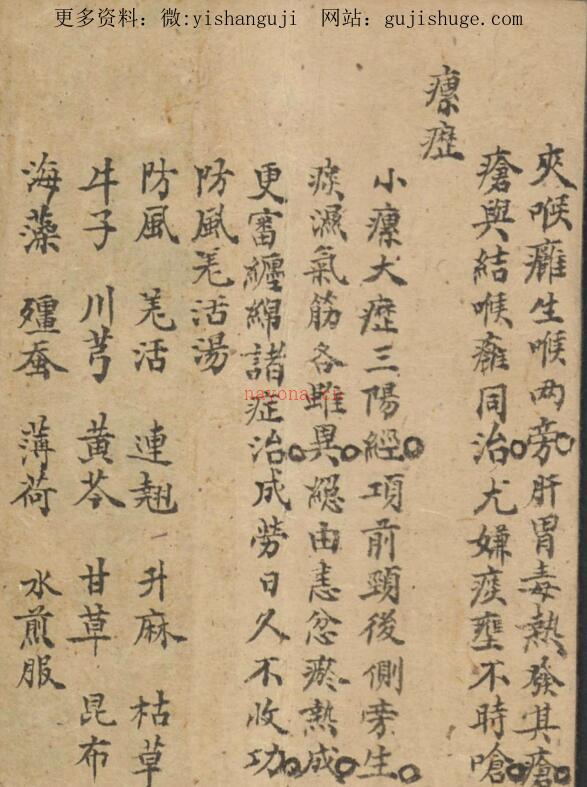 更多资料：微:yishanguji 网站：gujishuge.com
夾喉癰生喉两旁。肝胃毒熱發其瘡。
瘡與結喉癰同治。尤嫌痰壅不時嗆。
瘰癧
小瘰大癧三陽經。項前頸後側旁生。
痰濕氣筋各雖異。緫由恚忿瘀熱成。
更審纏綿諸症治。成勞日久不收功。
防風羌活湯
防風 羌活 連翹 升麻 枯草
牛子 川芎 黃芩 甘草 昆布
海藻 殭蚕 薄荷 水煎服
nayona.cn